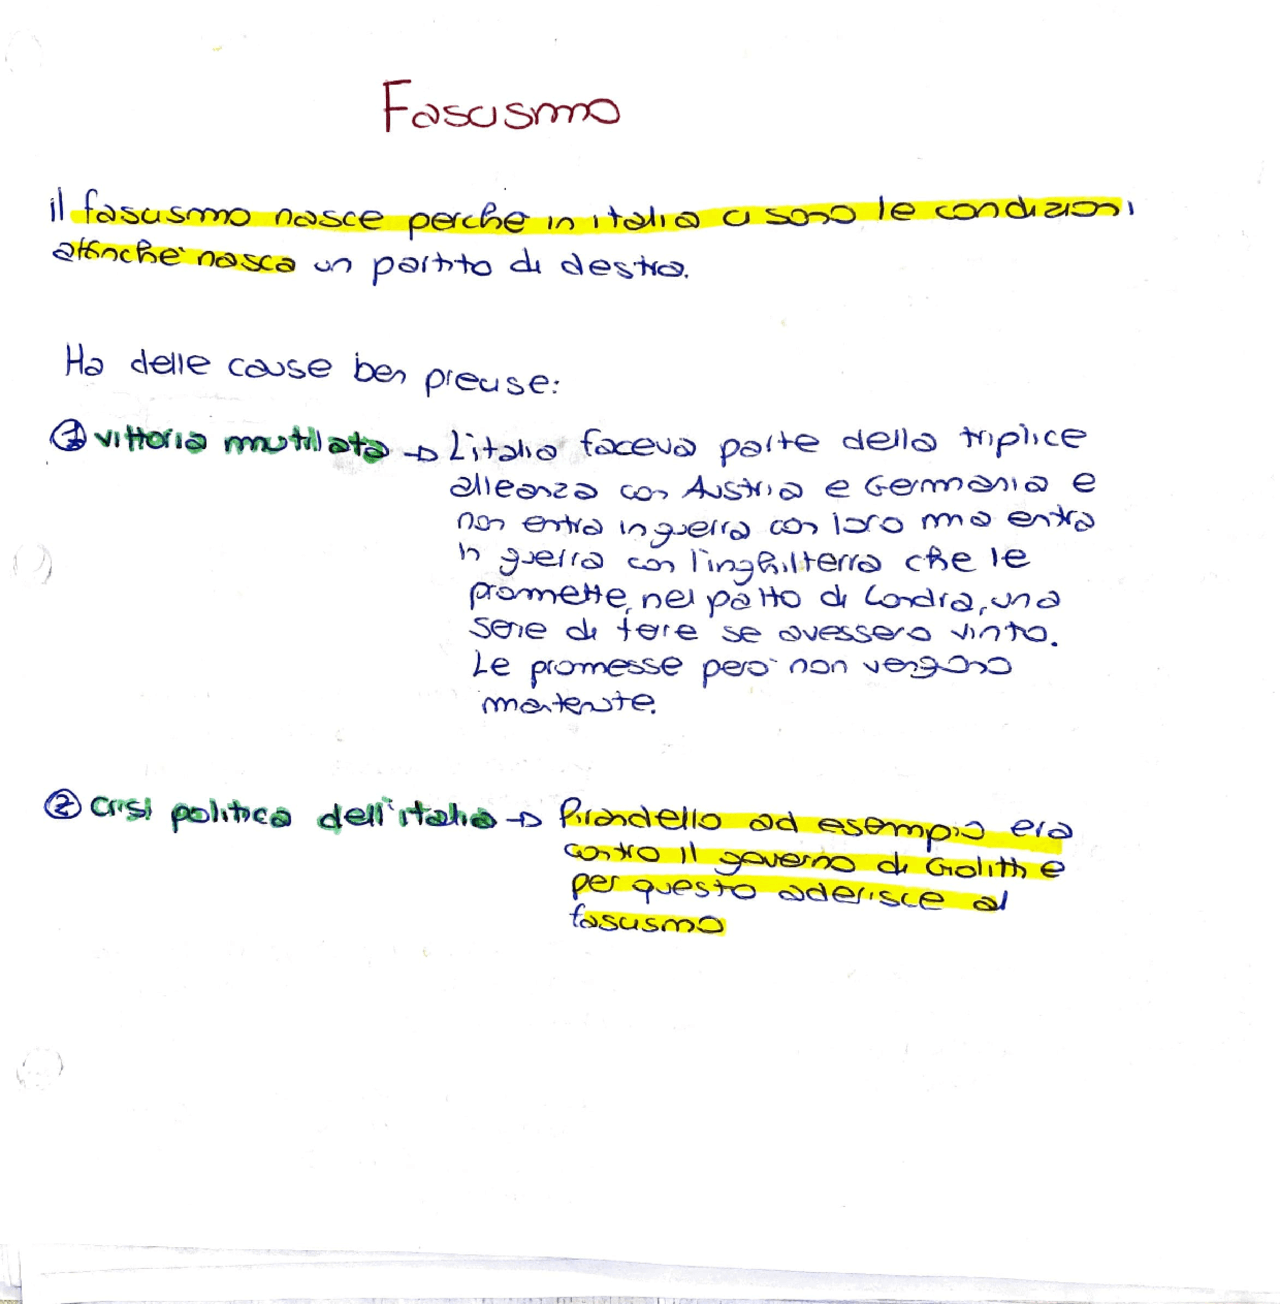 Fascismo
il fascismo nasce perche in italia ci sono le condizioni
affinche' nasca un partito di destra.
Ha delle cause ben precise:
① vittoria mutilata → L'italia faceva parte della triplice
alleanza con Austria e Germania e
non entra in guerra con loro ma entra
in guerra con l'inghilterra che le
promette, nel patto di Londra, una
serie di terre se avessero vinto.
Le promesse pero' non vengono
mantenute.
② crisi politica dell'italia → Pirandello ad esempio era
contro il governo di Giolitti e
per questo aderisce al
fascismo